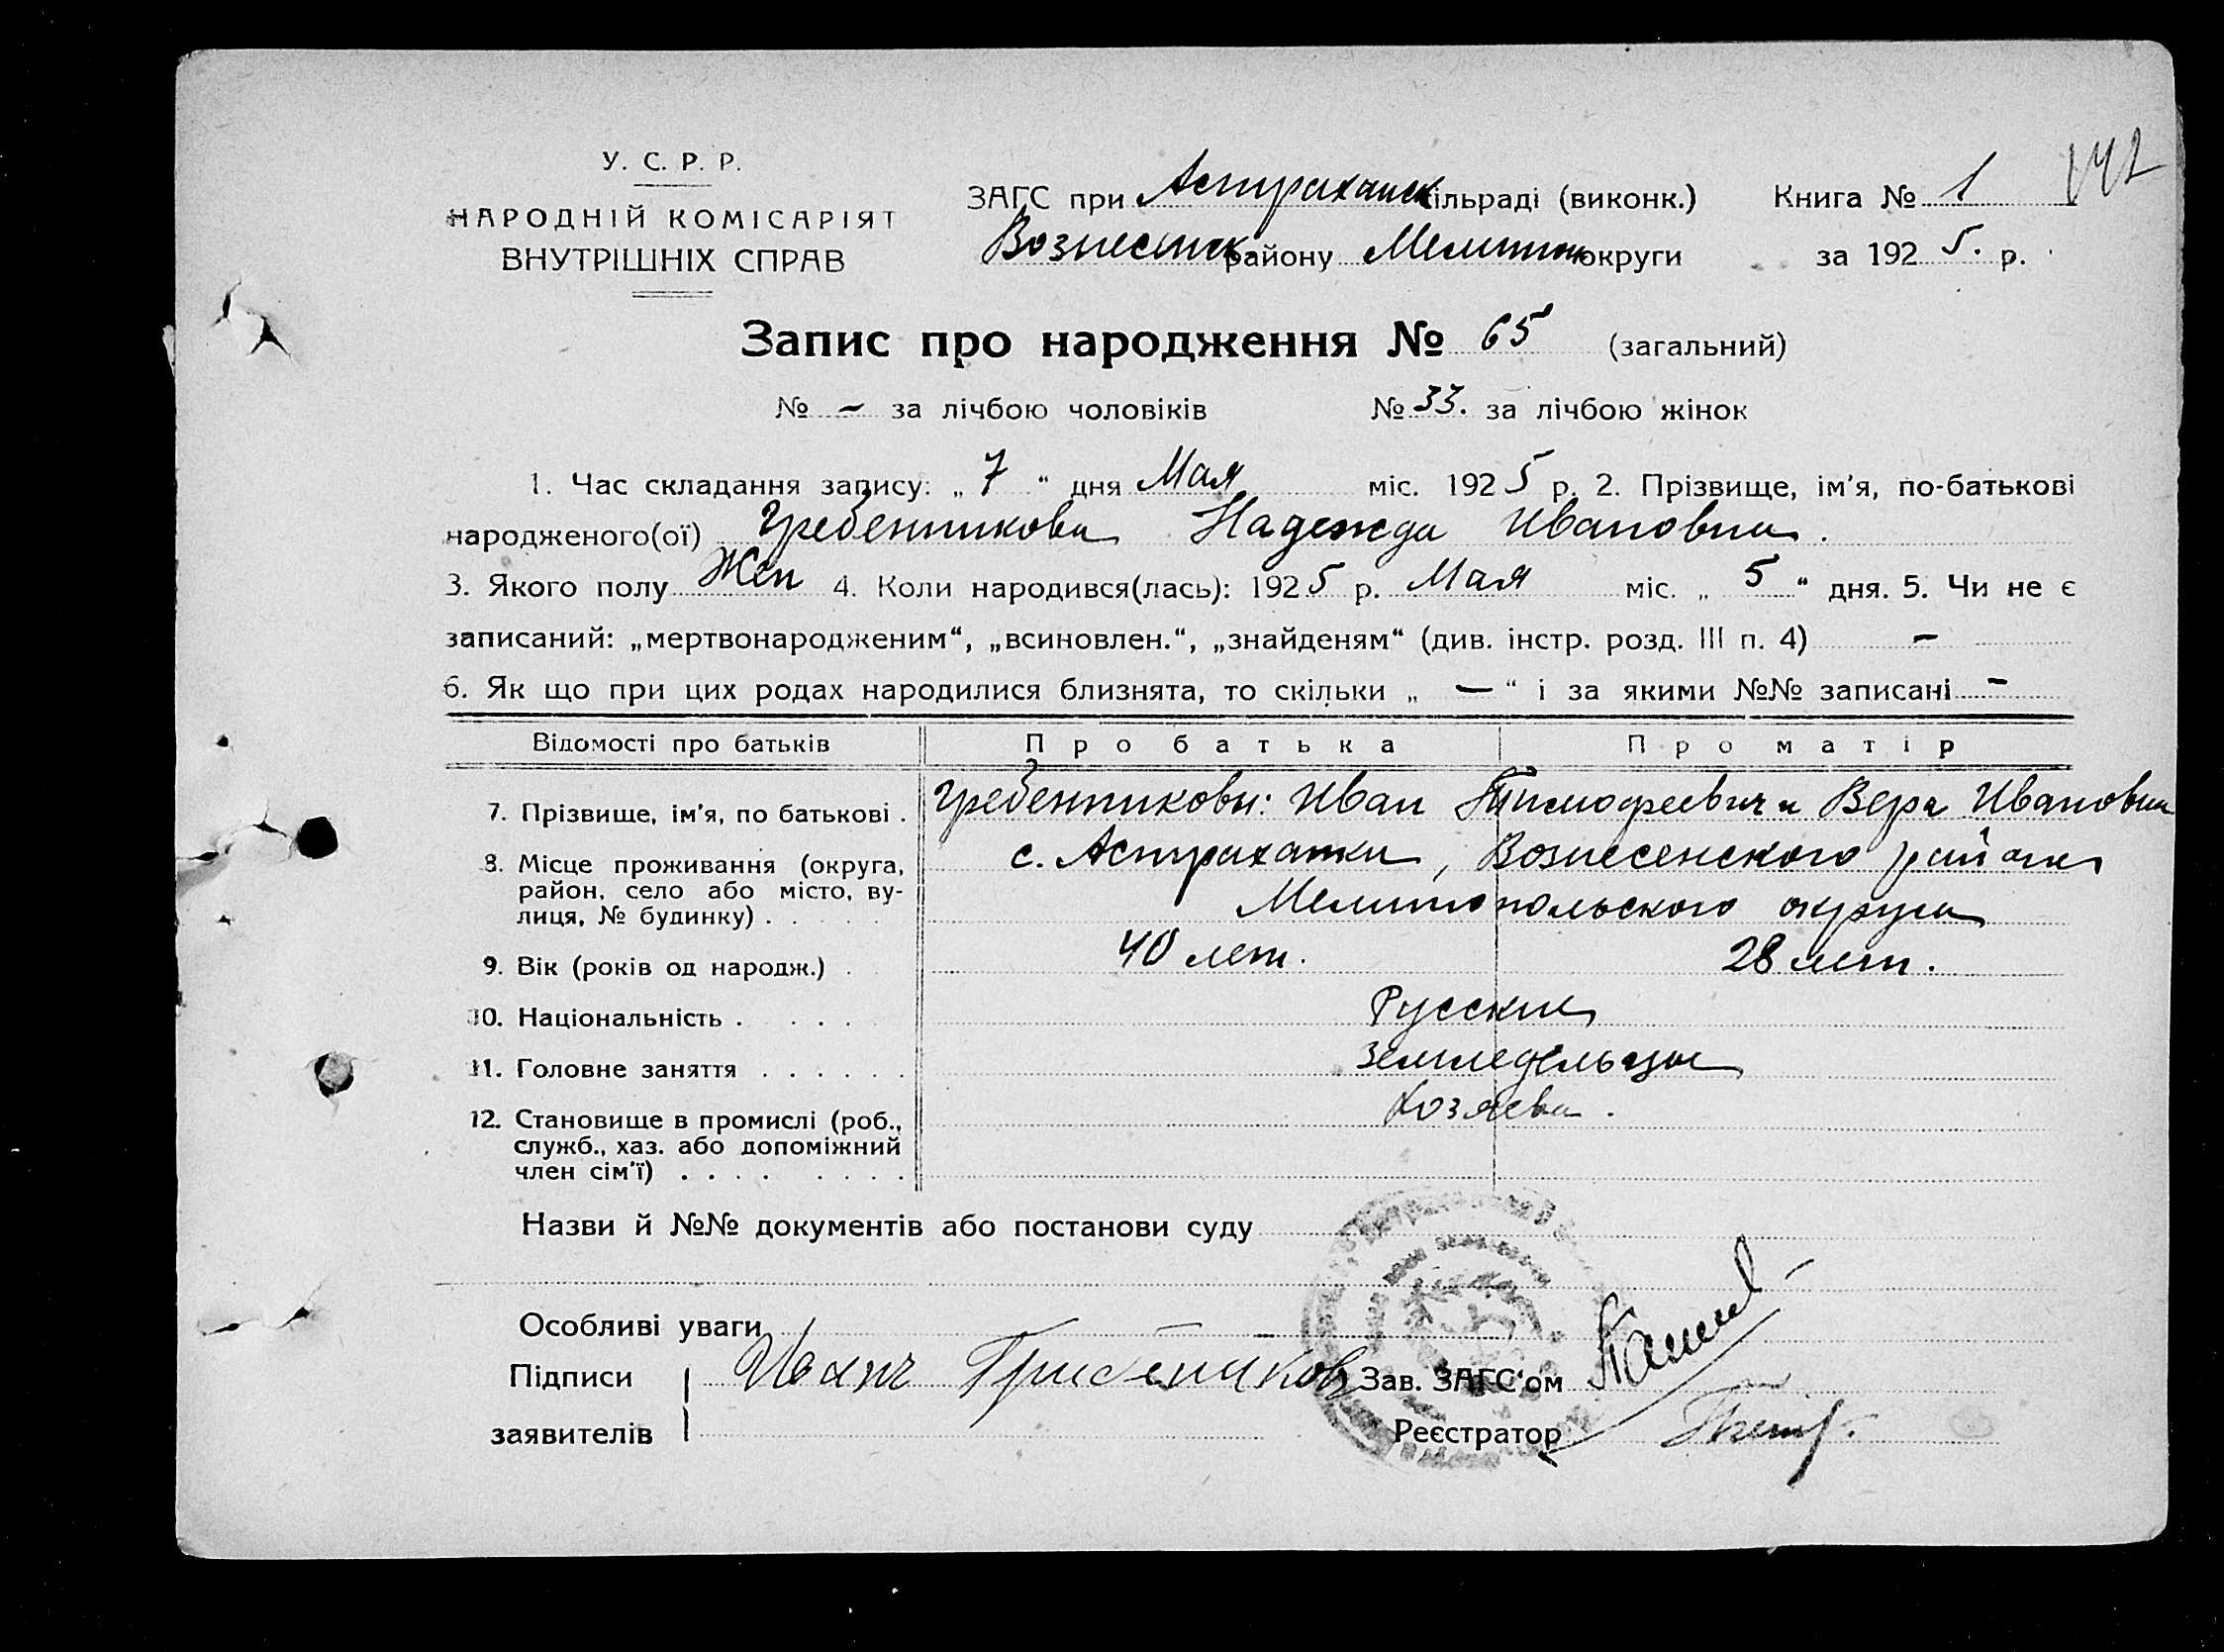 У. С. Р. Р.
НАРОДНІЙ КОМІСАРІЯТ
ВНУТРІШНІХ СПРАВ
ЗАГС при Астраханск сільраді (виконк.) Книга № 1 142
Вознесенск району Мелитоп округи за 1925. р.
Запис про народження № 65 (загальний)
№ – за лічбою чоловіків № 33. за лічбою жінок
1. Час складання запису: „7“ дня Мая міс. 1925 р. 2. Прізвище, ім'я, по-батькові
народженого(ої) Гребенникова Надежда Ивановна.
3. Якого полу Жен 4. Коли народився(лась): 1925 р. Мая міс. „5“ дня. 5. Чи не є
записаний: „мертвонародженим“, „всиновлен.“, „знайденям“ (див. інстр. розд. III п. 4) –
6. Як що при цих родах народилися близнята, то скільки „ — “ і за якими №№ записані –
Відомості про батьків Про батька Про матір
7. Прізвище, ім'я, по батькові . Гребенниковы: Иван Тимофеевич и Вера Ивановна
8. Місце проживання (округа, с. Астраханки, Вознесенского района
район, село або місто, ву-
лиця, № будинку) . . . . . Мелитопольского округа
9. Вік (років од народж.) . 40 лет. 28 лет.
10. Національність . . . . . Русские
11. Головне заняття . . . . . . Земледельцы
12. Становище в промислі (роб., Хозяева.
служб., хаз. або допоміжний
член сім'ї) . . . . . . . .
Назви й №№ документів або постанови суду
Особливі уваги –
Підписи Иванъ Грибениковъ Зав. ЗАГС'ом
заявителів Реєстратор